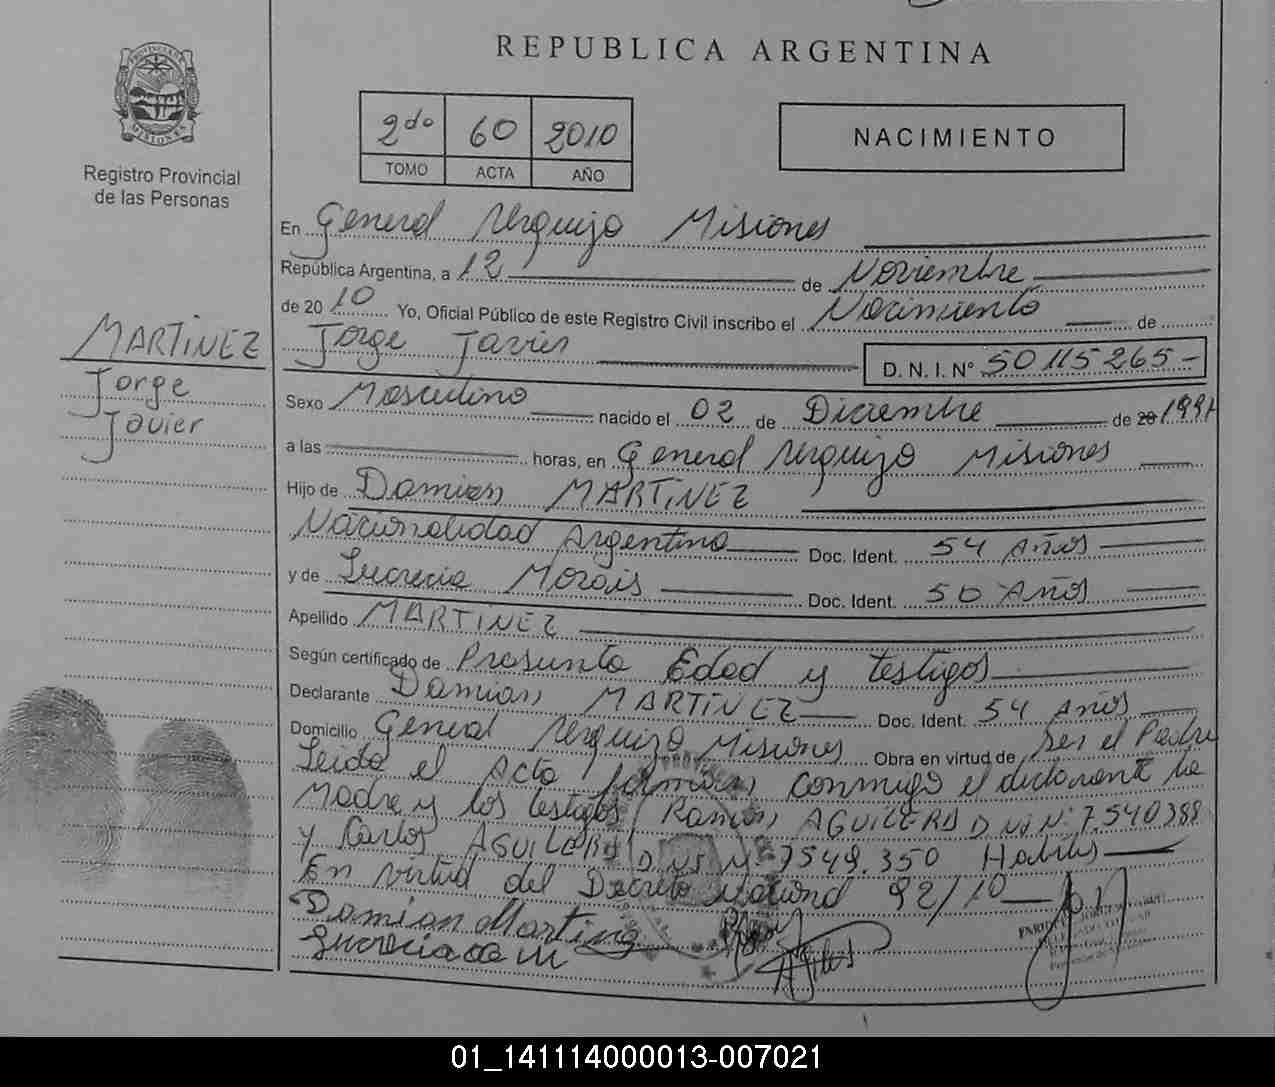 REPUBLICA ARGENTINA
PROVINCIA DE
MISIONES
Registro Provincial
de las Personas
2do 60 2010
TOMO ACTA AÑO
NACIMIENTO
En General Urquiza Misiones
República Argentina, a 12 de Noviembre
de 20 10 Yo, Oficial Público de este Registro Civil inscribo el Nacimiento de
Jorge Javier D. N. I. Nº 50115265-
MARTINEZ
Jorge
Javier
Sexo Masculino nacido el 02 de Diciembre de 20 1991
a las horas, en General Urquiza Misiones
Hijo de Damian MARTINEZ
Nacionalidad Argentina Doc. Ident. 54 Años
y de Lucrecia Morais Doc. Ident. 50 Años
Apellido MARTINEZ
Según certificado de Presunta Edad y testigos
Declarante Damian MARTINEZ Doc. Ident. 54 Años
Domicilio General Urquiza Misiones Obra en virtud de ser el Padre
Leida el Acta firman conmigo el declarante la
Madre y los testigos Ramon AGUILERA D NI Nº 7.540388
y Carlos AGUILERA D.N.I Nº 7549.350 Habiles
En virtud del Decreto Nacional 92/10
Damian Martinez
Lucrecia de M
01_141114000013-007021